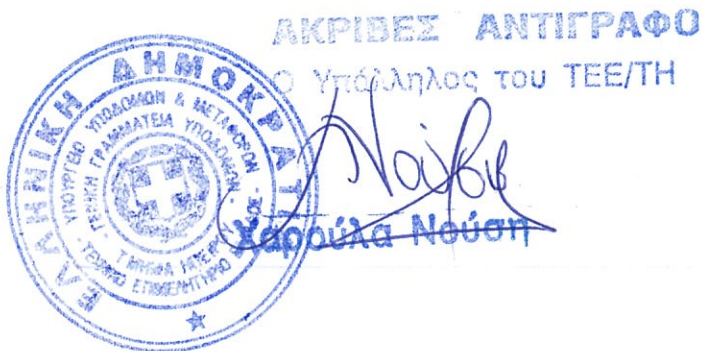 ΑΚΡΙΒΕΣ ΑΝΤΙΓΡΑΦΟ
Ο Υπάλληλος του ΤΕΕ/ΤΗ
Χαρούλα Νούση
ΕΛΛΗΝΙΚΗ ΔΗΜΟΚΡΑΤ
ΥΠΟΥΡΓΕΙΟ ΥΠΟΔΟΜΩΝ & ΜΕΤΑΦΟΡΩΝ
ΓΕΝΙΚΗ ΓΡΑΜΜΑΤΕΙΑ ΥΠΟΔΟΜΩΝ
ΤΕΧΝΙΚΟ ΕΠΙΜΕΛΗΤΗΡΙΟ
ΤΜΗΜΑ